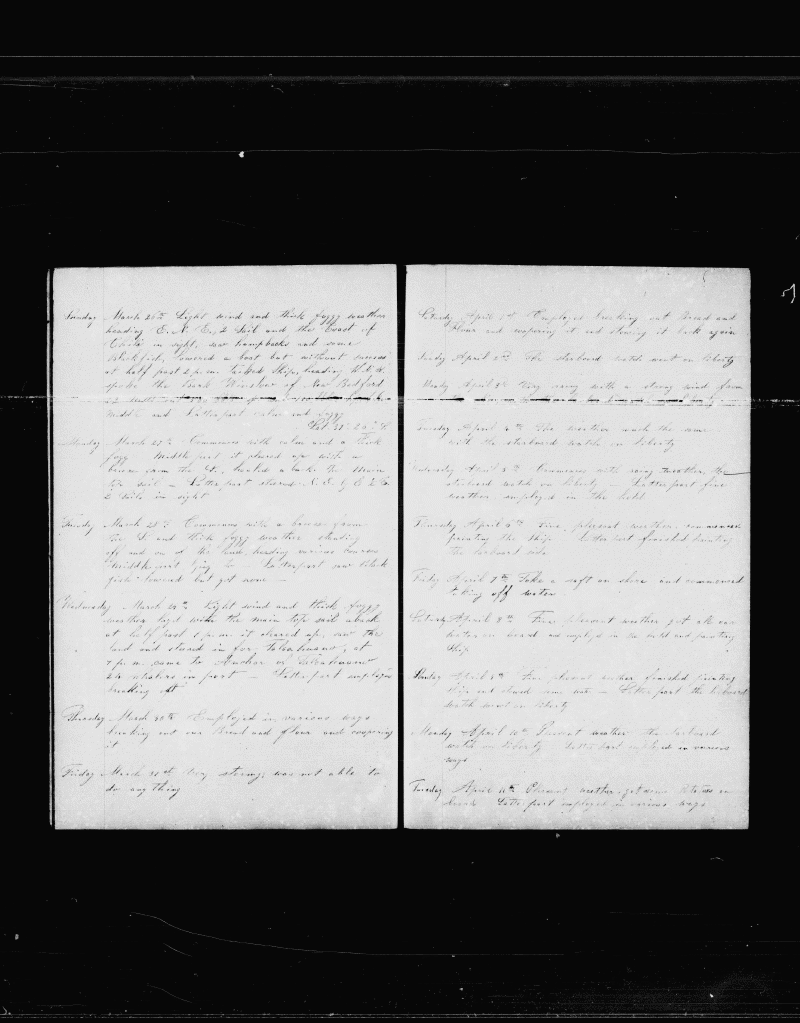 Sunday March 26th Light wind and thick foggy weather
heading E. N. E., 2 Sail and the Coast of
Chile in sight, saw humpbacks and some
Blackfish, lowered a boat but without success
at half past 2 p.m. tacked Ship, heading W. S. W.
spoke the Bark Winslow of New Bedford
Middle and Latter part calm and foggy
Monday March 27th Commences with calm and a thick
fogg Middle part it cleared up with a
breeze from the S., hauled aback the Main
top sail — Latter part steered
2 Sails in sight
Tuesday March 28th Commences with a breeze from
the S. and thick foggy weather standing
off and on of the land, heading various courses
Middle part lying to — Latter part saw Black
fish lowered but got none —
Wednesday March 29th Light wind and thick foggy
weather layd with the main top sail aback
at half past 1 p.m. it cleared up, saw the
land and stood in for Talcahuano, at
7 p.m. came to Anchor in Talcahuano
24 whalers in port — Latter part employed
breaking out
Thursday March 30th Employed in various ways
breaking out our Bread and flour and coopering
it
Friday March 31th Very stormy, was not able to
do any thing
Saturday April 1st Employed breaking out Bread and
flour and coopering it and stowing it back again
Sunday April 2nd The starboard watch went on liberty
Monday April 3d Very rainy with a strong wind from
Tuesday April 4th The weather much the same
with the starboard watch on liberty
Wednesday April 5th Commences with rainy weather, the
starboard watch on liberty — Latter part fine
weather employed in the hold
Thursday April 6th Fine pleasant weather commenced
painting the Ship Latter part finished painting
the larboard side
Friday April 7th Take a raft on shore and commenced
taking off water
Saturday April 8th Fine pleasant weather got all our
water on board and employd in the hold and painting
Ship
Sunday April 9th Fine pleasant weather finished painting
Ship and — Latter part the larboard
watch went on liberty
Monday April 10th Pleasant weather the larboard
watch on liberty Latter part employed in various
ways
Tuesday April 11th Pleasant weather got some Potatoes on
board Latter part employed in various ways